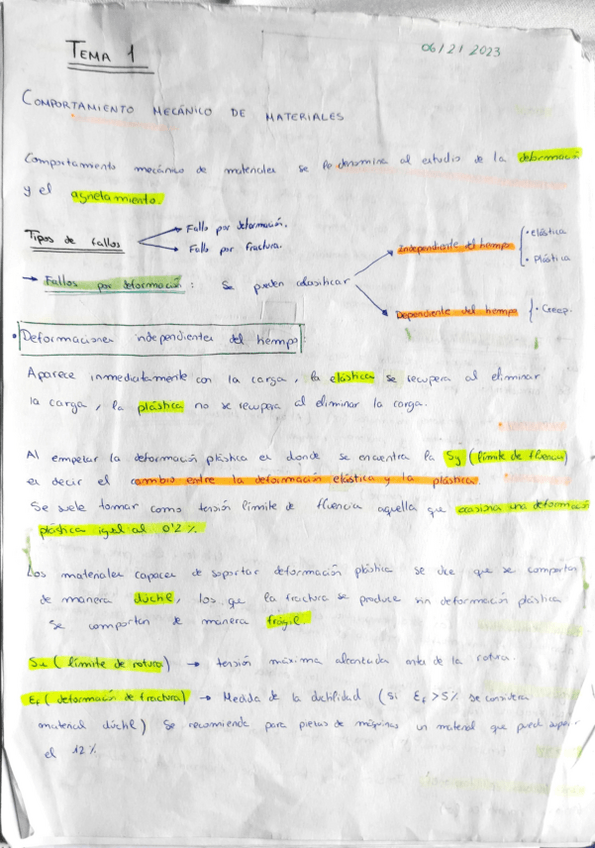 TEMA 1
06/21 2023
COMPORTAMIENTO MECÁNICO DE MATERIALES
Comportamiento mecánico de materiales se le denomina al estudio de la deformación
y el agrietamiento.
Tipos de fallos
Fallo por deformación.
Fallo por fractura.
→ Fallos por deformación : Se pueden clasificar
Independiente del tiempo
• elástica
• Plástica
Dependiente del tiempo
• Creep.
• Deformaciones independientes del tiempo
Aparece inmediatamente con la carga, la elástica se recupera al eliminar
la carga, la plástica no se recupera al eliminar la carga.
Al empezar la deformación plástica es donde se encuentra la Sy (límite de fluencia)
es decir el cambio entre la deformación elástica y la plástica.
Se suele tomar como tensión límite de fluencia aquella que ocasiona una deformación
plástica igual al 0'2%.
Los materiales capaces de soportar deformación plástica se dice que se comportan
de manera dúctil, los que la fractura se produce sin deformación plástica
se comportan de manera frágil.
Su (límite de rotura) → tensión máxima alcanzada antes de la rotura.
Ef (deformación de fractura) → Medida de la ductilidad (si Ef >5% se considera
material dúctil) Se recomienda para piezas de máquinas un material que puede superar
el 12%